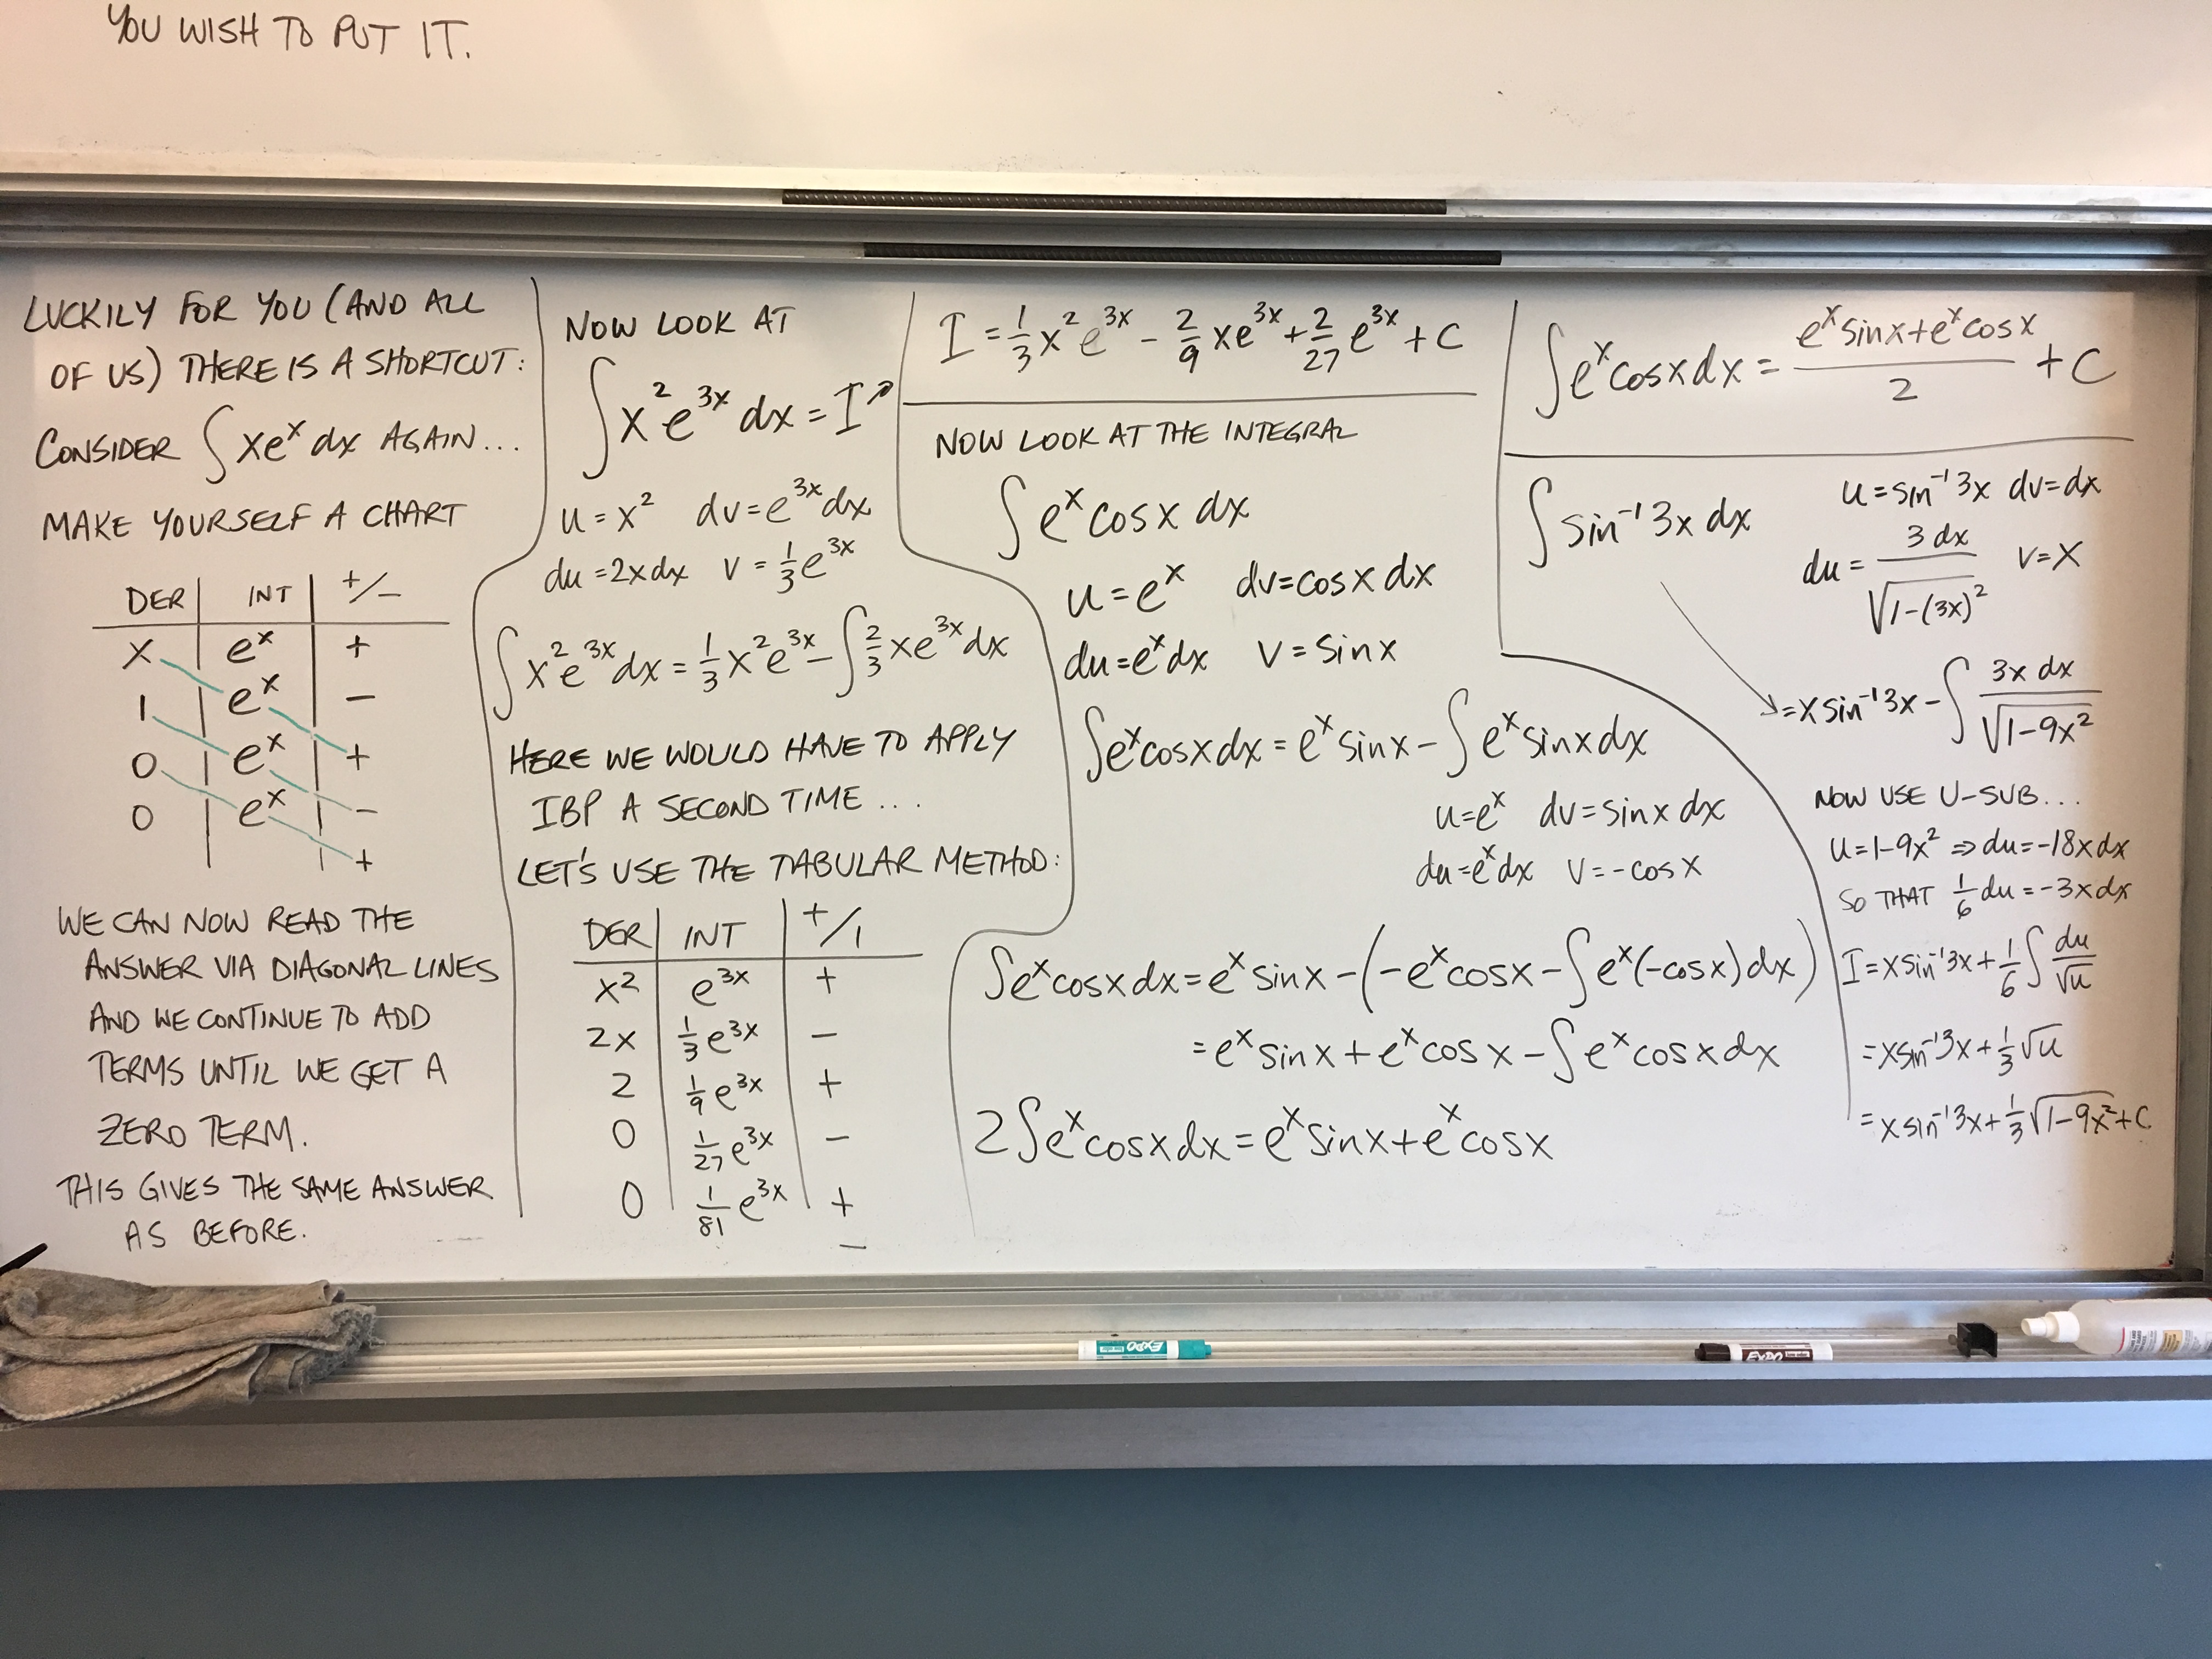 YOU WISH TO PUT IT.
LUCKILY FOR YOU (AND ALL
OF US) THERE IS A SHORTCUT:
CONSIDER ∫xeˣdx AGAIN...
MAKE YOURSELF A CHART
DER | INT | +/-
x | eˣ | +
1 | eˣ | -
0 | eˣ | +
0 | eˣ | -
+
WE CAN NOW READ THE
ANSWER VIA DIAGONAL LINES
AND WE CONTINUE TO ADD
TERMS UNTIL WE GET A
ZERO TERM.
THIS GIVES THE SAME ANSWER
AS BEFORE.
NOW LOOK AT
∫x²e³ˣ dx = I
u = x² dv = e³ˣdx
du = 2xdx v = 1/3 e³ˣ
∫x²e³ˣdx = 1/3 x²e³ˣ - ∫2/3 xe³ˣdx
HERE WE WOULD HAVE TO APPLY
IBP A SECOND TIME...
LET'S USE THE TABULAR METHOD:
DER | INT | +/1
x² | e³ˣ | +
2x | 1/3 e³ˣ | -
2 | 1/9 e³ˣ | +
0 | 1/27 e³ˣ | -
0 | 1/81 e³ˣ | +
-
I = 1/3 x²e³ˣ - 2/9 xe³ˣ + 2/27 e³ˣ + C
NOW LOOK AT THE INTEGRAL
∫eˣcosx dx
u = eˣ dv = cosx dx
du = eˣdx v = sinx
∫eˣcosxdx = eˣsinx - ∫eˣsinxdx
u = eˣ dv = sinx dx
du = eˣdx v = -cosx
∫eˣcosxdx = eˣsinx - (-eˣcosx - ∫eˣ(-cosx)dx)
= eˣsinx + eˣcosx - ∫eˣcosxdx
2∫eˣcosxdx = eˣsinx + eˣcosx
∫eˣcosxdx = (eˣsinx + eˣcosx)/2 + C
∫sin⁻¹3x dx u = sin⁻¹3x dv = dx
du = 3dx/√(1-(3x)²) v = x
= xsin⁻¹3x - ∫3x dx/√(1-9x²)
NOW USE U-SUB...
u = 1-9x² ⇒ du = -18xdx
SO THAT 1/6 du = -3xdx
I = xsin⁻¹3x + 1/6 ∫du/√u
= xsin⁻¹3x + 1/3 √u
= xsin⁻¹3x + 1/3 √(1-9x²) + C
EXPO
EXPO